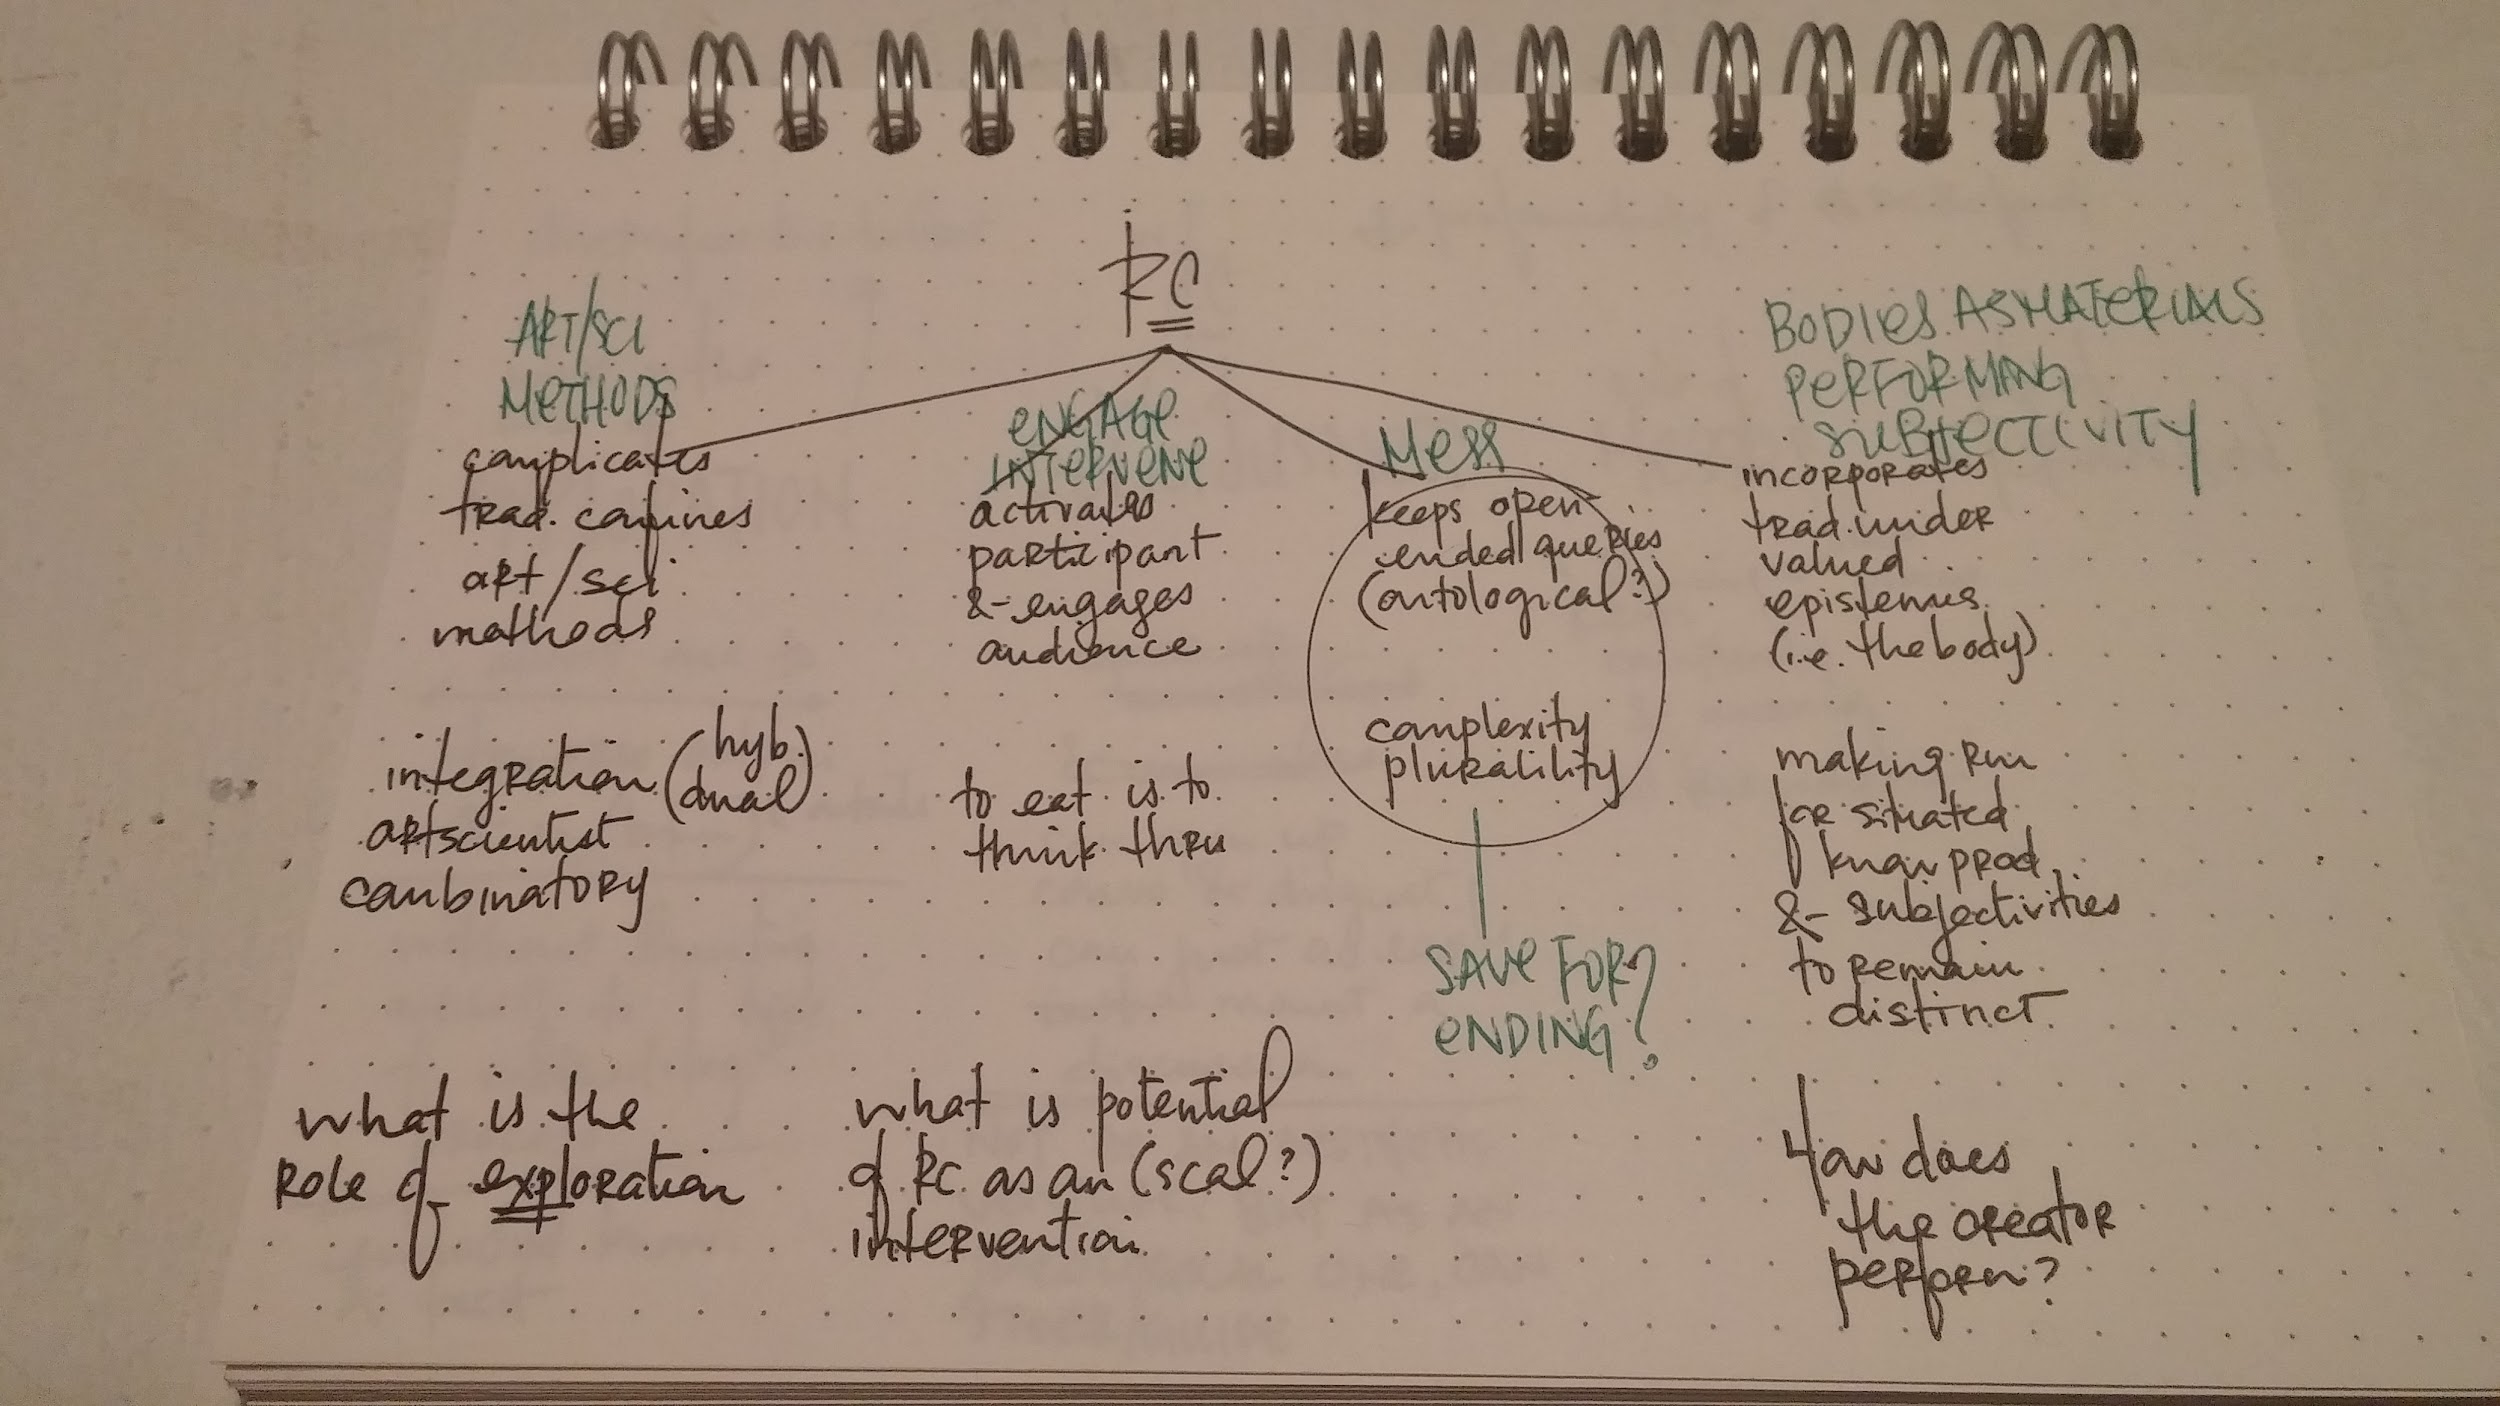 RC
ART/SCI
METHODS
complicates
trad. confines
art/sci
methods
integration (hyb.
dual)
artscientist
combinatory
what is the
role of exploration
ENGAGE
INTERVENE
activates
participant
& engages
audience
to eat is to
think thru
what is potential
of RC as an (scal?)
intervention
MESS
keeps open
ended queries
(ontological?)
complexity
plurality
SAVE FOR
ENDING?
BODIES AS MATERIALS
PERFORMING
SUBJECTIVITY
incorporates
trad. under
valued
epistemes
(i.e. the body)
making rm
for situated
know prod.
& subjectivities
to remain
distinct
How does
the creator
perform?